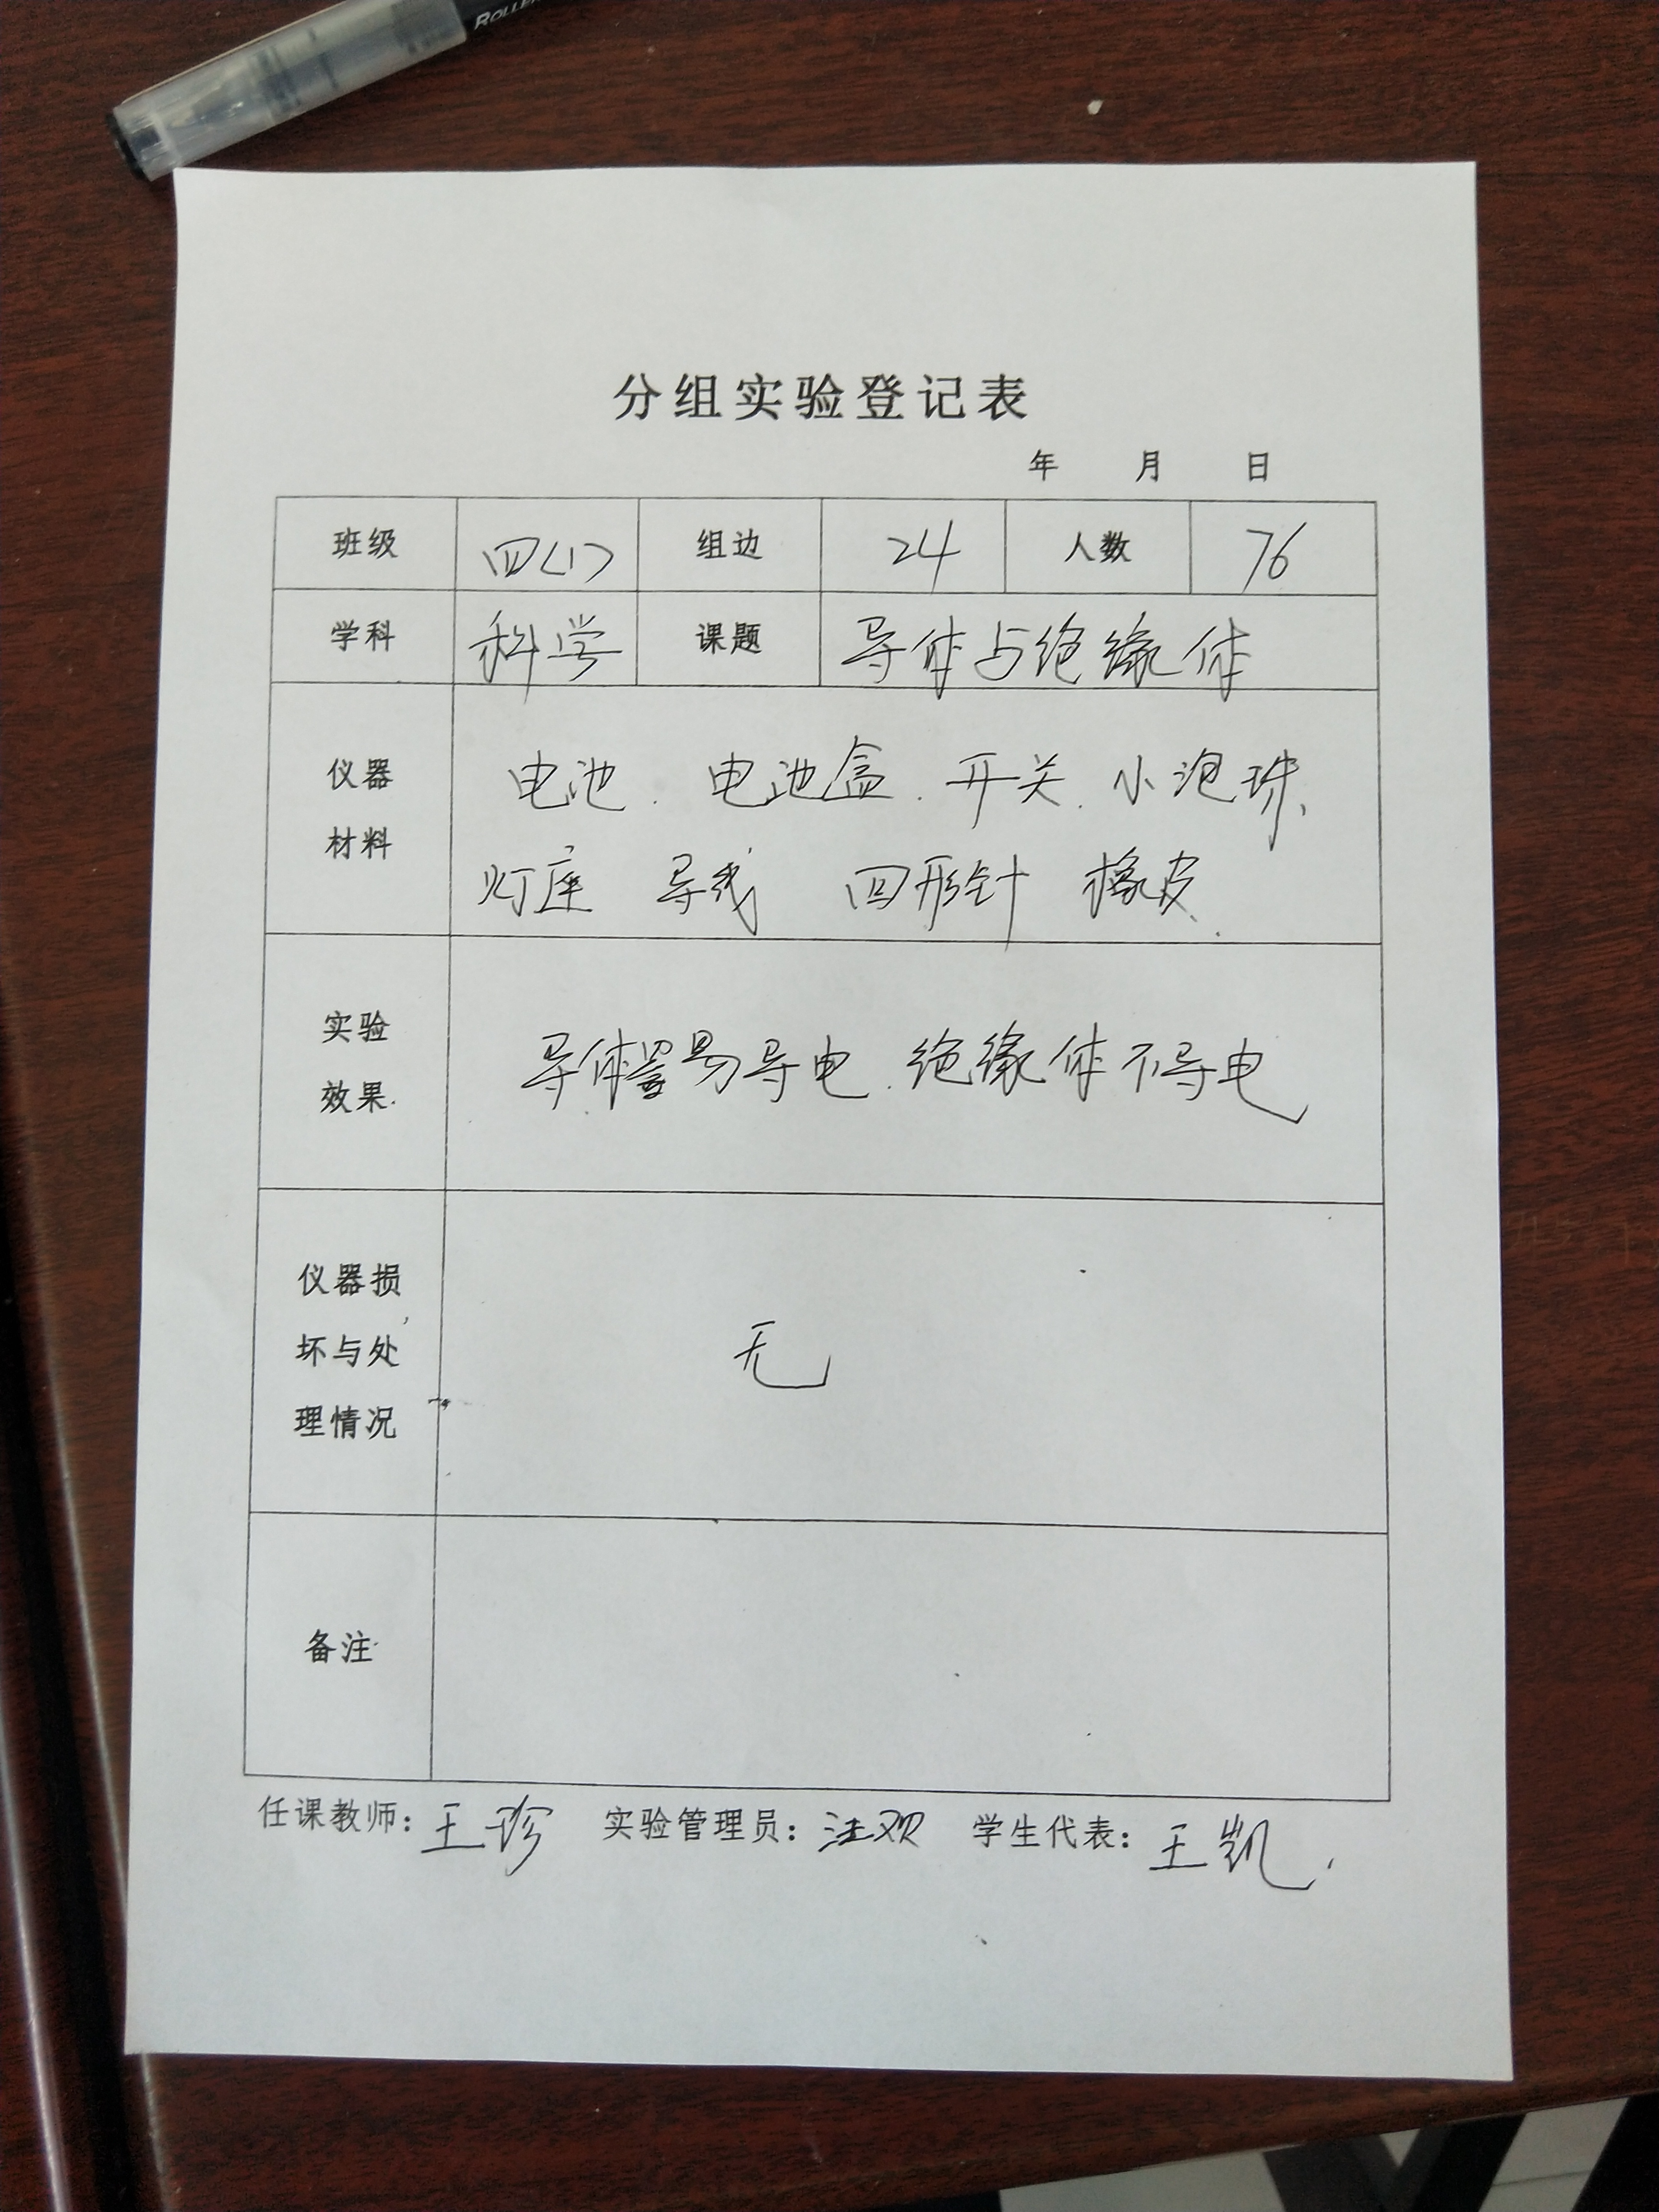 ROLLER
分组实验登记表
年 月 日
班级 四(1) 组边 24 人数 76
学科 科学 课题 导体与绝缘体
仪器
材料
电池、电池盒、开关、小泡珠、
灯座 导线 回形针 橡皮.
实验
效果.
导体容易导电.绝缘体不导电
仪器损
坏与处
理情况
无
备注
任课教师:王珍 实验管理员:汪欢 学生代表:王凯.